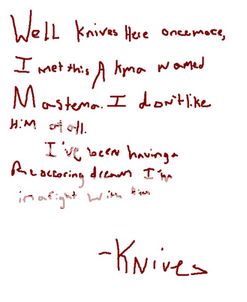 Well Knives Here oncemore,
I met this A kma named
Mastema. I don't like
Him at all.
I've been having a
Reaccoring dream I'm
in a fight with him
-Knives